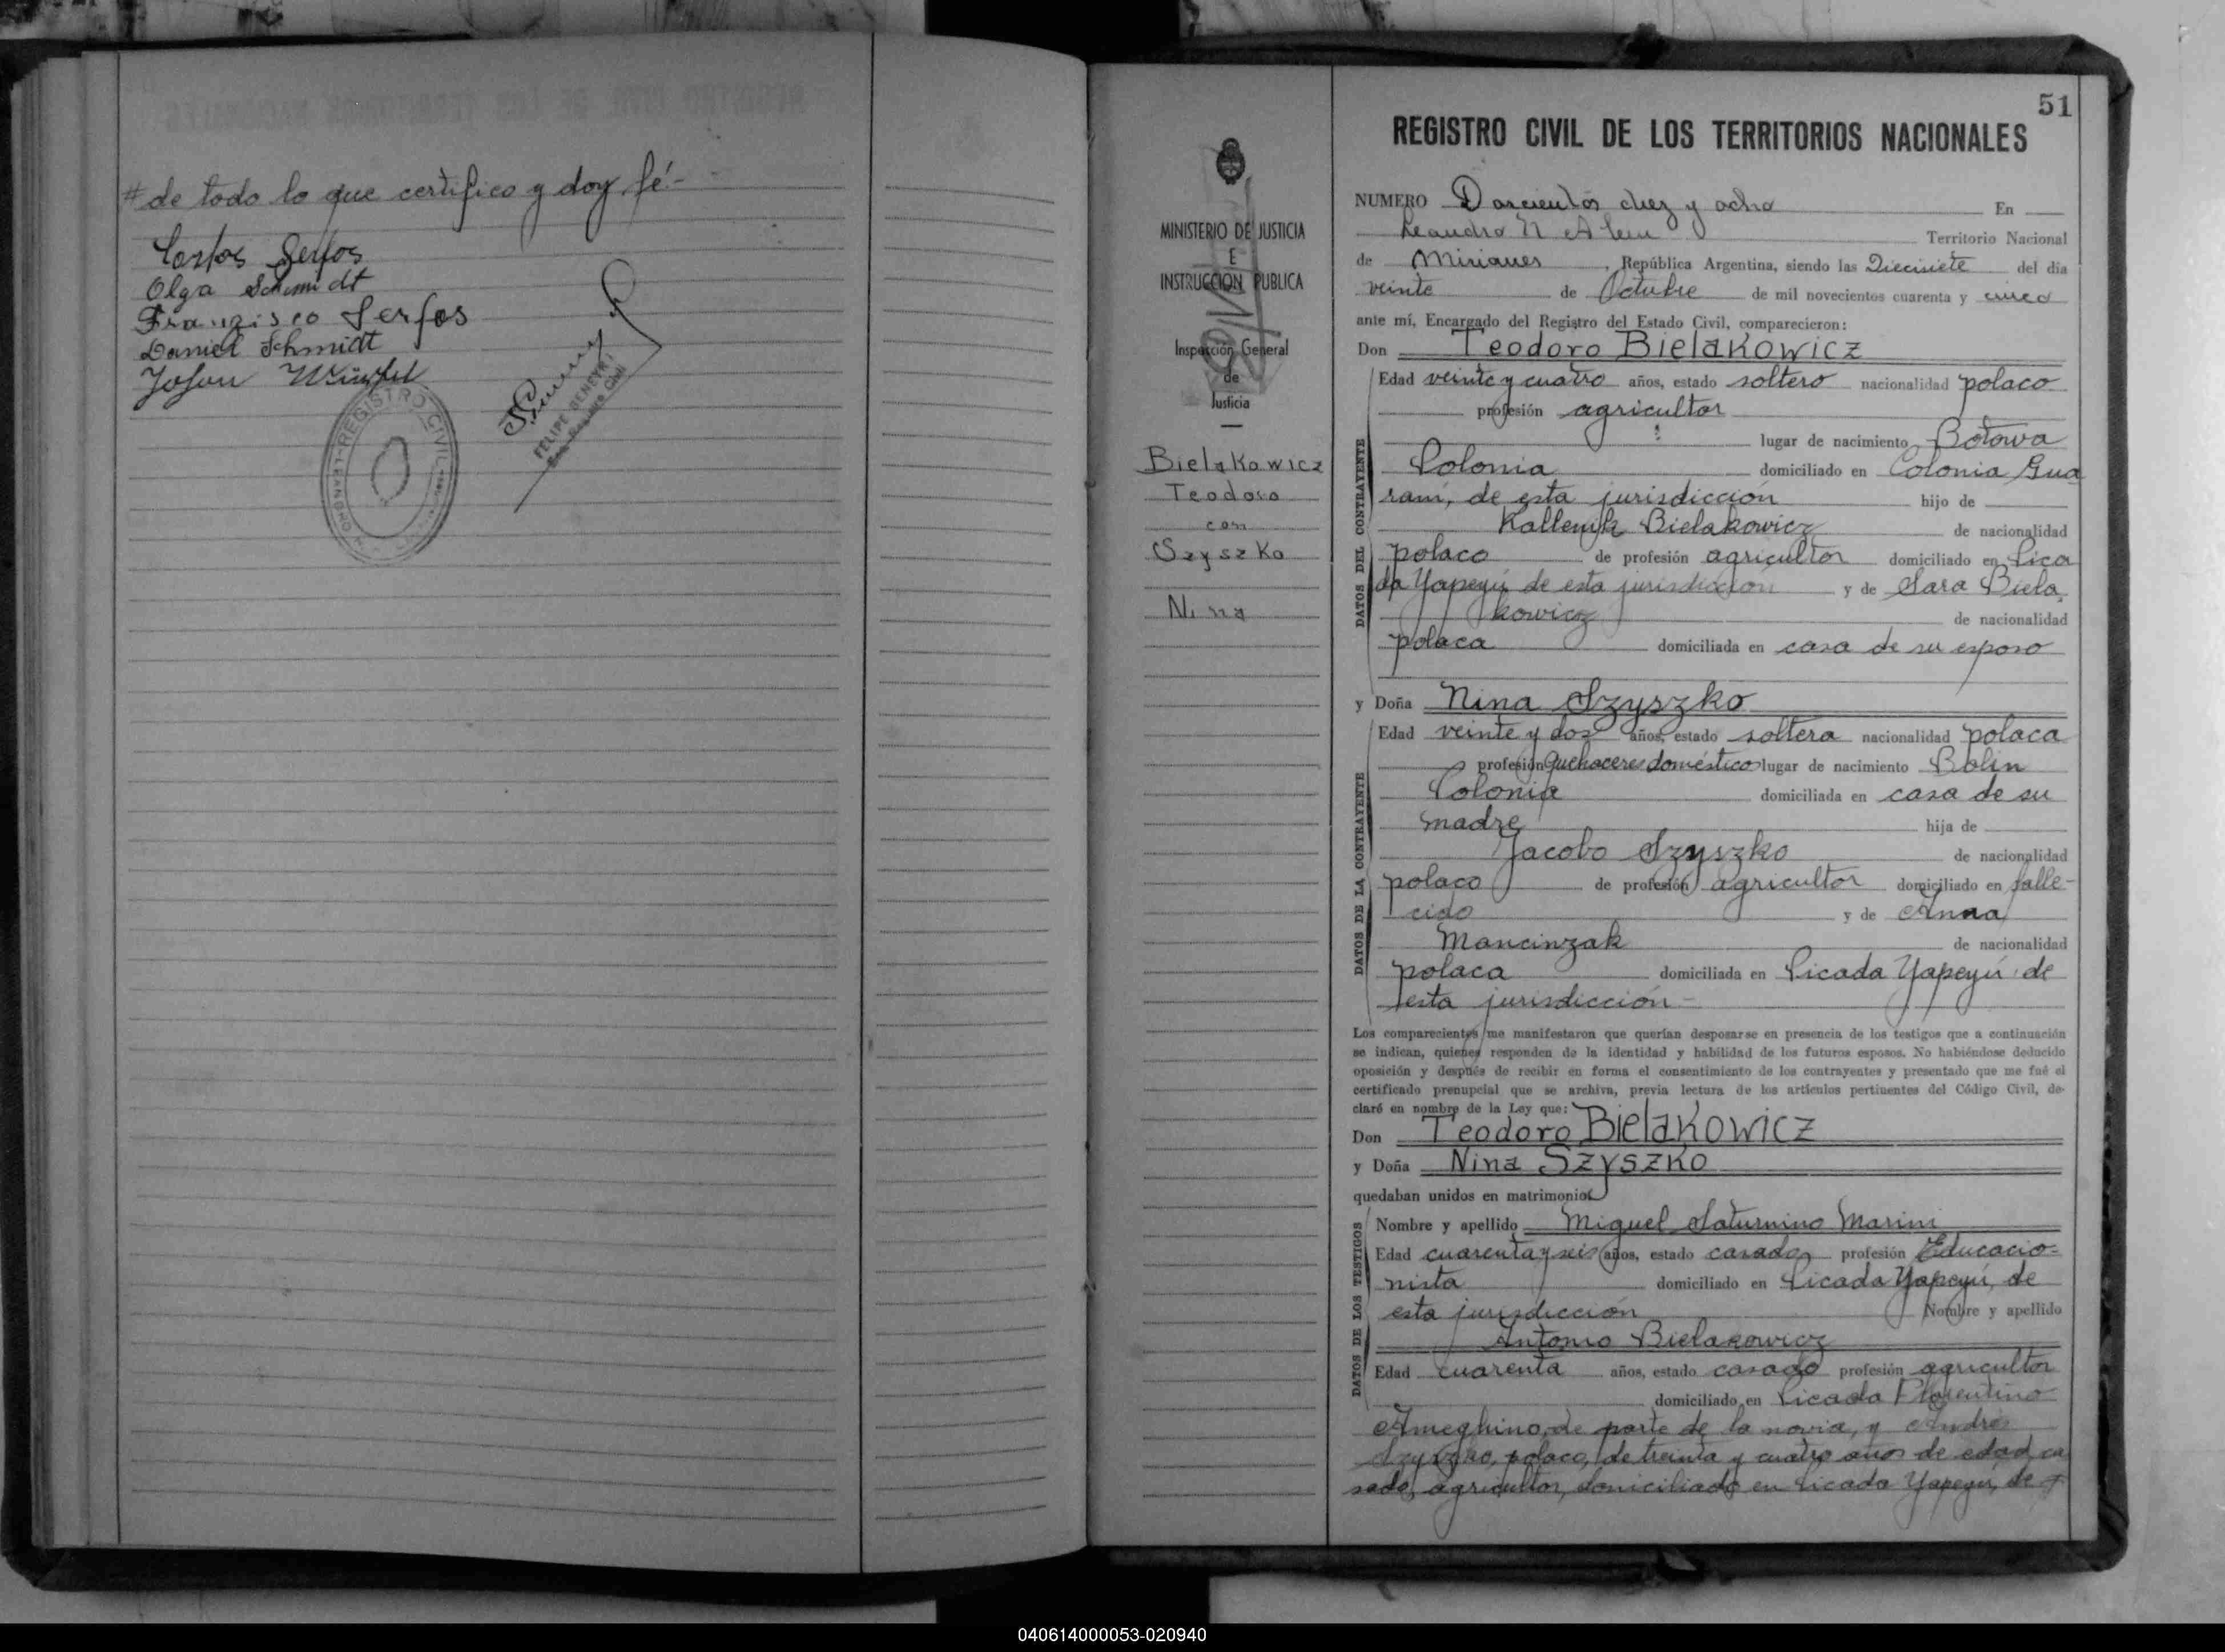 # de todo lo que certifico y doy fé.-
Carlos Serfos
Olga Schmidt
Franzisco Serfos
Daniel Schmidt
REGISTRO CIVIL
FELIPE BENEYRI
51
REGISTRO CIVIL DE LOS TERRITORIOS NACIONALES
MINISTERIO DE JUSTICIA
E
INSTRUCCION PUBLICA
Inspección General
de
Justicia
Bielakowicz
Teodoro
con
Szyszko
Nina
NUMERO Doscientos diez y ocho En
Leandro N Alem Territorio Nacional
de Misiones, República Argentina, siendo las Diecisiete del día
veinte de Octubre de mil novecientos cuarenta y cinco
ante mí, Encargado del Registro del Estado Civil, comparecieron:
Don Teodoro Bielakowicz
DATOS DEL CONTRAYENTE
Edad veinte y cuatro años, estado soltero nacionalidad polaco
profesión agricultor
lugar de nacimiento Botowa
Polonia domiciliado en Colonia Gua
raní, de esta jurisdicción hijo de
Kallenyk Bielakowicz de nacionalidad
polaco de profesión agricultor domiciliado en Pica
da Yapeyú de esta jurisdicción y de Sara Biela
kowicz de nacionalidad
polaca domiciliada en casa de su esposo
y Doña Nina Szyszko
DATOS DE LA CONTRAYENTE
Edad veinte y dos años, estado soltera nacionalidad polaca
profesión Quehaceres domésticos lugar de nacimiento Bolin
Polonia domiciliada en casa de su
madre hija de
Jacobo Szyszko de nacionalidad
polaco de profesión agricultor domiciliado en falle-
cido y de Anna
Mancinzak de nacionalidad
polaca domiciliada en Picada Yapeyú de
esta jurisdicción-
Los comparecientes me manifestaron que querían desposarse en presencia de los testigos que a continuación
se indican, quienes responden de la identidad y habilidad de los futuros esposos. No habiéndose deducido
oposición y después de recibir en forma el consentimiento de los contrayentes y presentado que me fué el
certificado prenupcial que se archiva, previa lectura de los artículos pertinentes del Código Civil, de-
claré en nombre de la Ley que:
Don Teodoro Bielakowicz
y Doña Nina Szyszko
quedaban unidos en matrimonio
DATOS DE LOS TESTIGOS
Nombre y apellido Miguel Saturnino Marini
Edad cuarenta y seis años, estado casado profesión Educacio-
nista domiciliado en Picada Yapeyú, de
esta jurisdicción Nombre y apellido
Antonio Bielakowicz
Edad cuarenta años, estado casado profesión agricultor
domiciliado en Picada Florentino
Ameghino, de parte de la novia, y Andrés
Szyszko, polaco, de treinta y cuatro años de edad, ca
sado, agricultor, domiciliado en Picada Yapeyú, de #
040614000053-020940